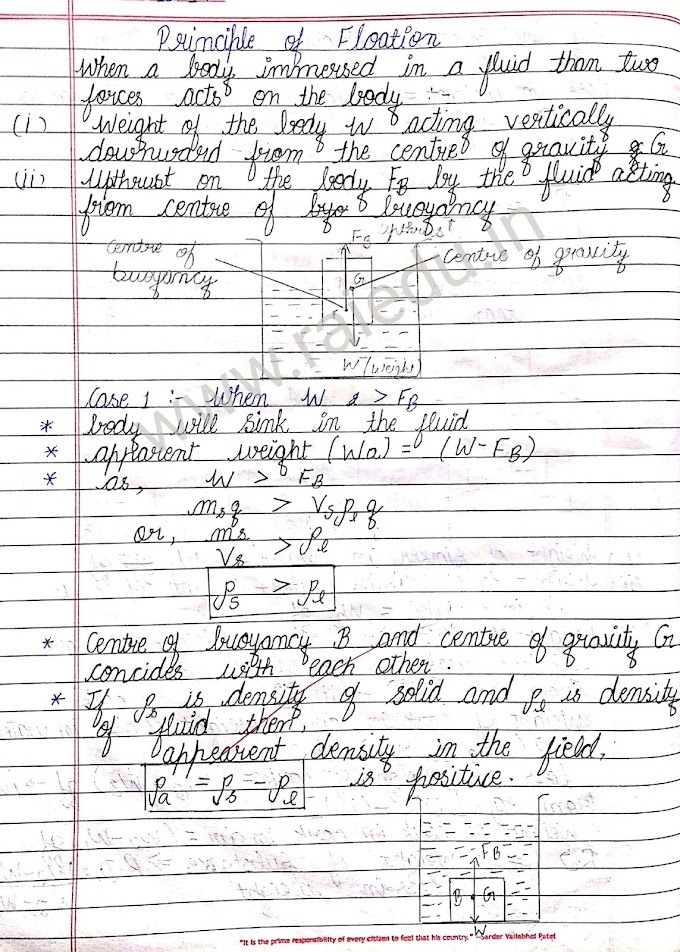 Principle of Floation
When a body immersed in a fluid than two
forces acts on the body :-
(i) Weight of the body W acting vertically
downward from the centre of gravity G
(ii) Upthrust on the body FB by the fluid acting
from centre of buoyancy
Upthrust
FB
centre of
buoyancy
G
centre of gravity
W (weight)
Case 1 :- When W > FB
* body will sink in the fluid
* apparent weight (Wa) = (W-FB)
* as, W > FB
msg > Vsρlg
or, ms/Vs > ρl
ρs > ρl
* Centre of buoyancy B and centre of gravity G
concides with each other.
* If ρs is density of solid and ρl is density
of fluid then,
appearent density in the field,
ρa = ρs - ρl is positive.
FB
B G
W
"It is the prime responsibility of every citizen to feel that his country." -Sardar Vallabhbhai Patel
www.rajedu.in